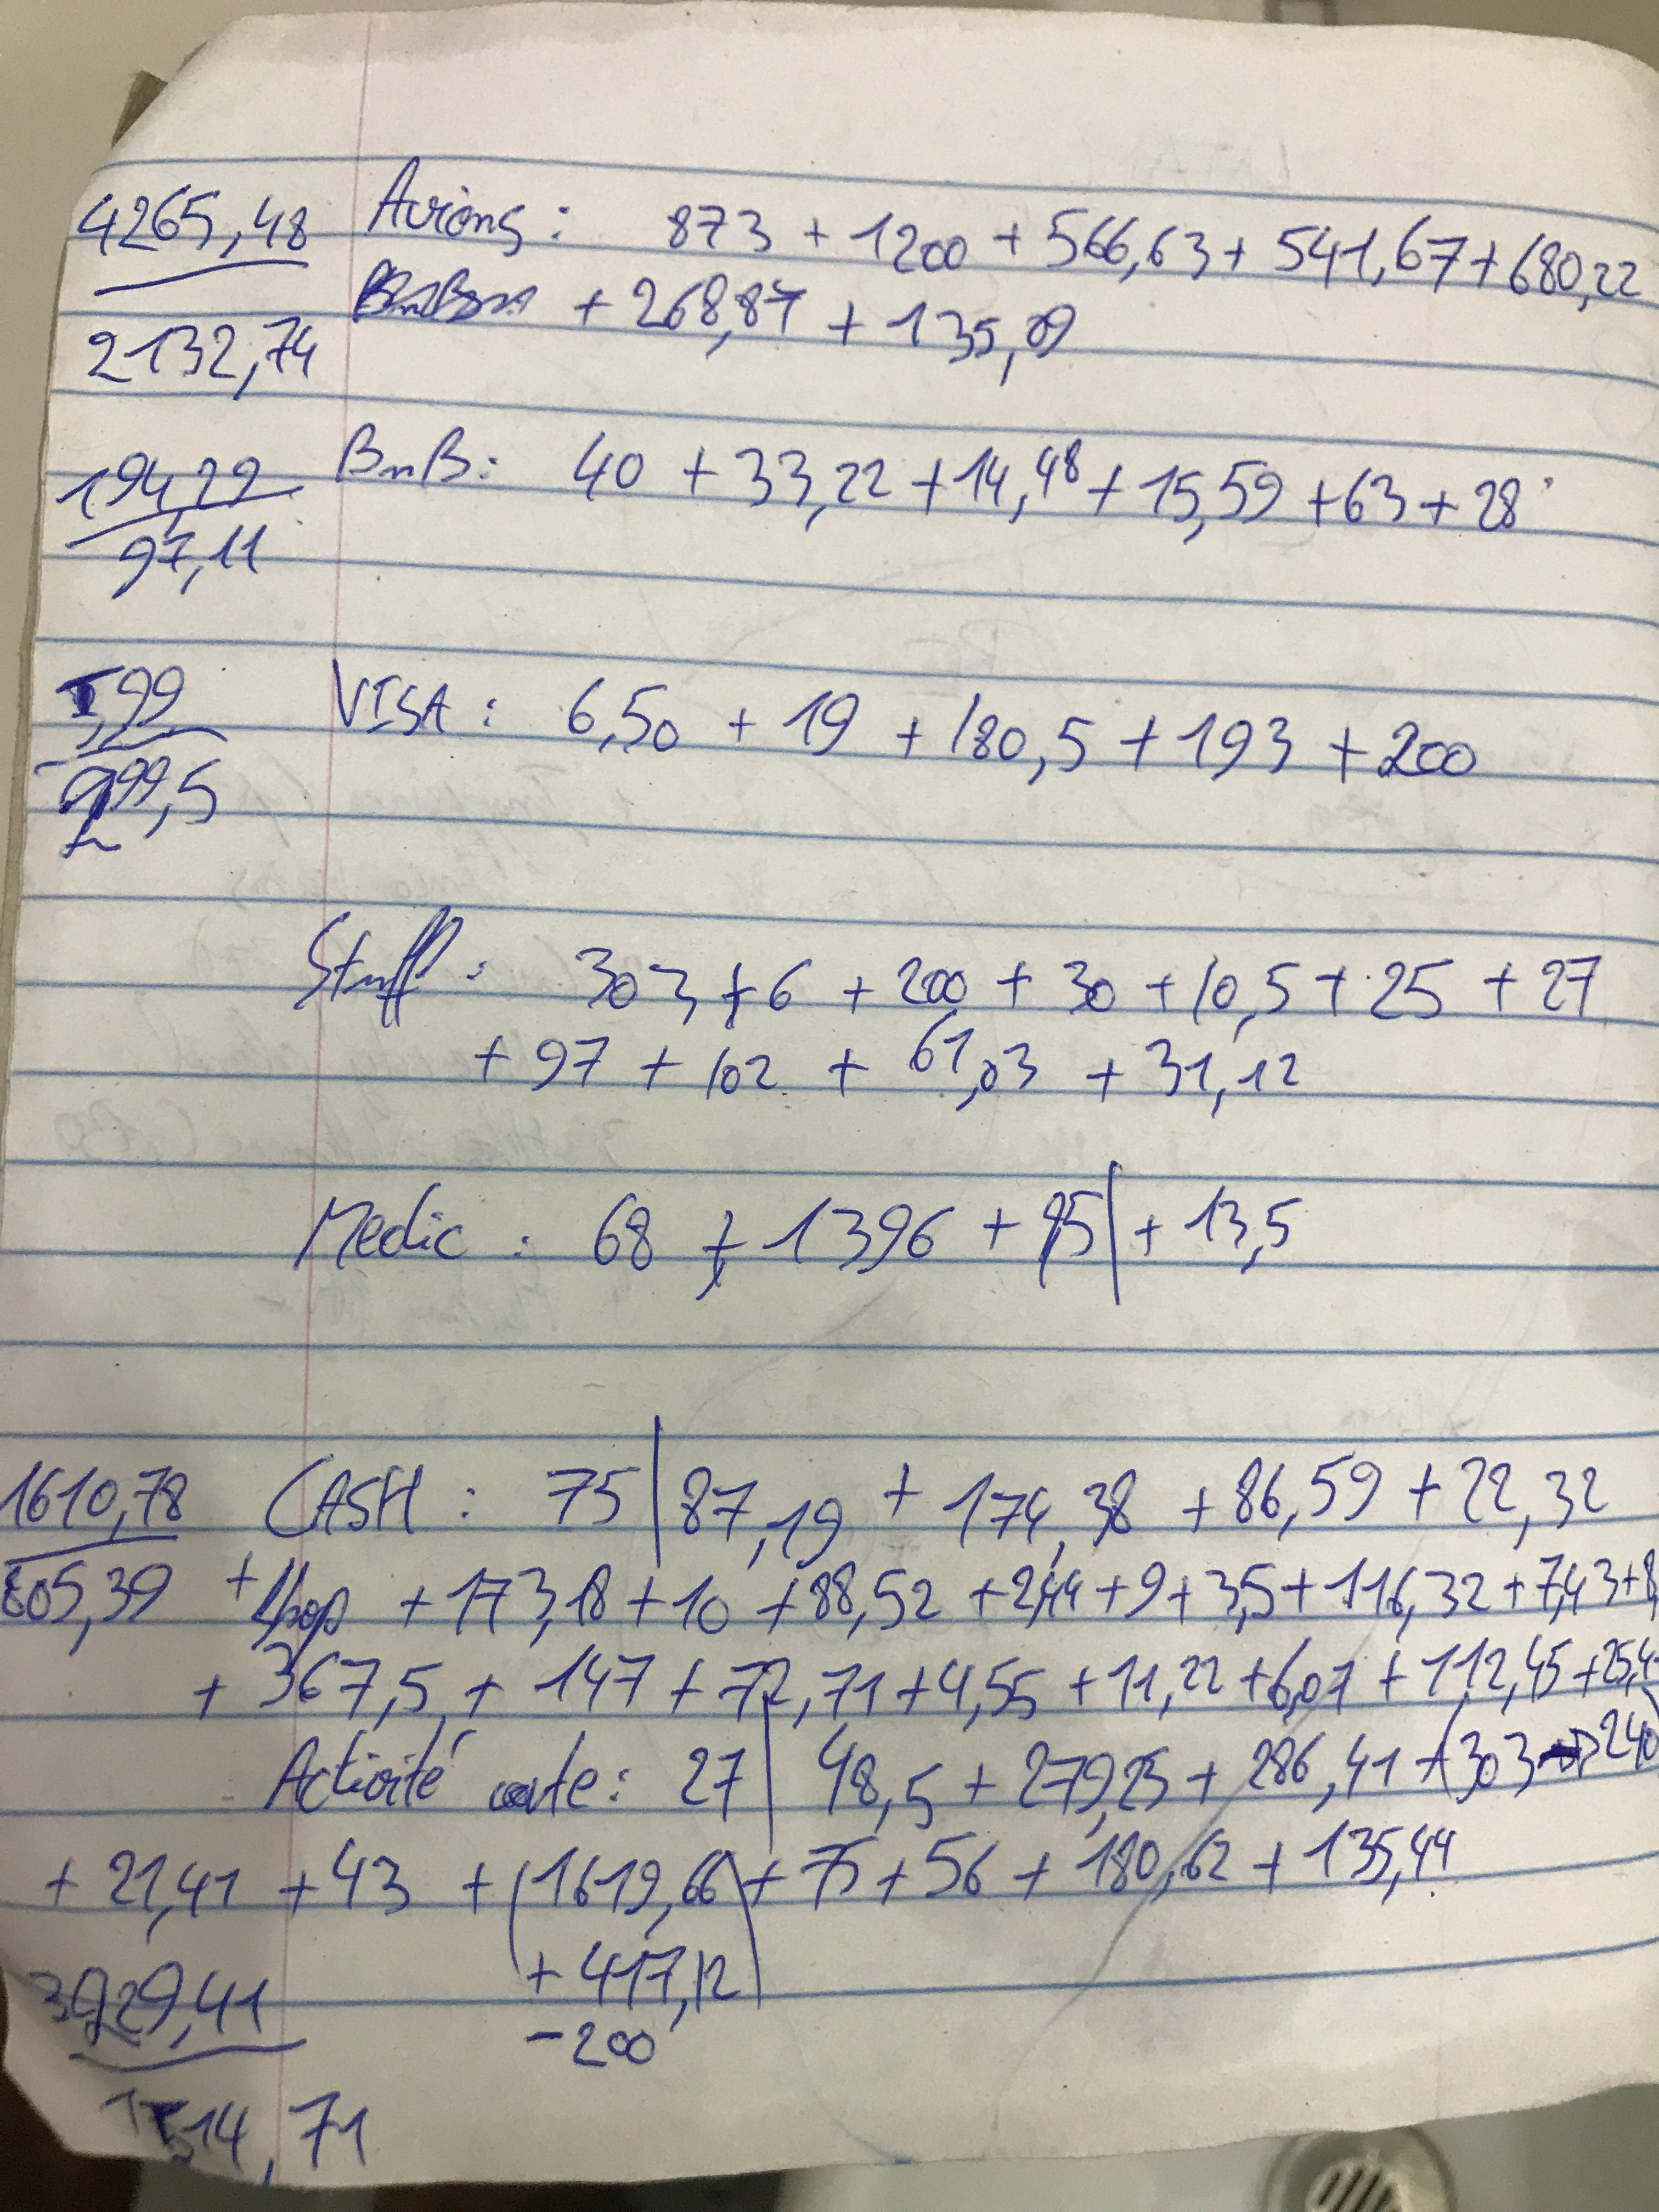 4265,48 Avions : 873 + 1200 + 566,63 + 541,67 + 680,22
+ 268,87 + 135,09
2132,74
194,22 BnB : 40 + 33,22 + 14,48 + 15,59 + 63 + 28
97,11
,99 VISA : 6,50 + 19 + 180,5 + 193 + 200
299,5
Stuff : 303 + 6 + 200 + 30 + 10,5 + 25 + 27
+ 97 + 102 + 61,03 + 31,12
Medic : 68 + 1396 + 85 | + 13,5
1610,78 CASH : 75 | 87,19 + 174,38 + 86,59 + 22,32
805,39 + + 173,18 + 10 + 88,52 + 2,44 + 9 + 3,5 + 116,32 + 7,43 + 8,
+ 367,5 + 147 + 72,71 + 4,55 + 11,22 + 6,07 + 112,45 + 25,4
Activité carte : 27 | 48,5 + 279,23 + 286,41 + (303 → 240)
+ 21,41 + 43 + (1619,66) + 75 + 56 + 180,62 + 135,44
+ 417,12
3929,41
- 200
14,71